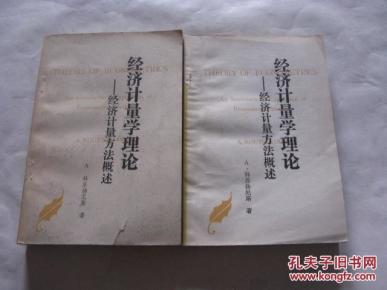 THEORY OF ECONOMETRICS
经济计量学理论
——经济计量方法概述
著
THEORY OF ECONOMETRICS
经济计量学理论
——经济计量方法概述
著
孔夫子旧书网
KONGFZ.COM